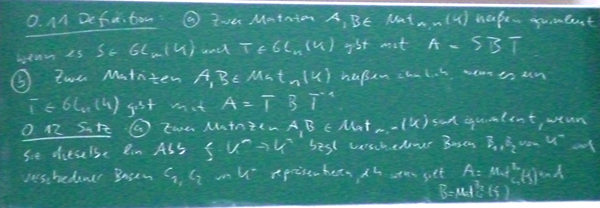 0.11 Definition: (a) Zwei Matrizen A, B ∈ Mat_{m,n}(K) heißen äquivalent
wenn es S ∈ GL_m(K) und T ∈ GL_n(K) gibt mit A = S B T
(b) Zwei Matrizen A, B ∈ Mat_n(K) heißen ähnlich, wenn es ein
T ∈ GL_n(K) gibt mit A = T B T^{-1}
0.12 Satz (a) Zwei Matrizen A, B ∈ Mat_{m,n}(K) sind äquivalent, wenn
sie dieselbe lin Abb f K^n → K^m bzgl verschiedener Basen B_1, B_2 von K^n und
verschiedener Basen C_1, C_2 von K^m repräsentieren, d.h. wenn gilt A = Mat (f) und
B = Mat (f)